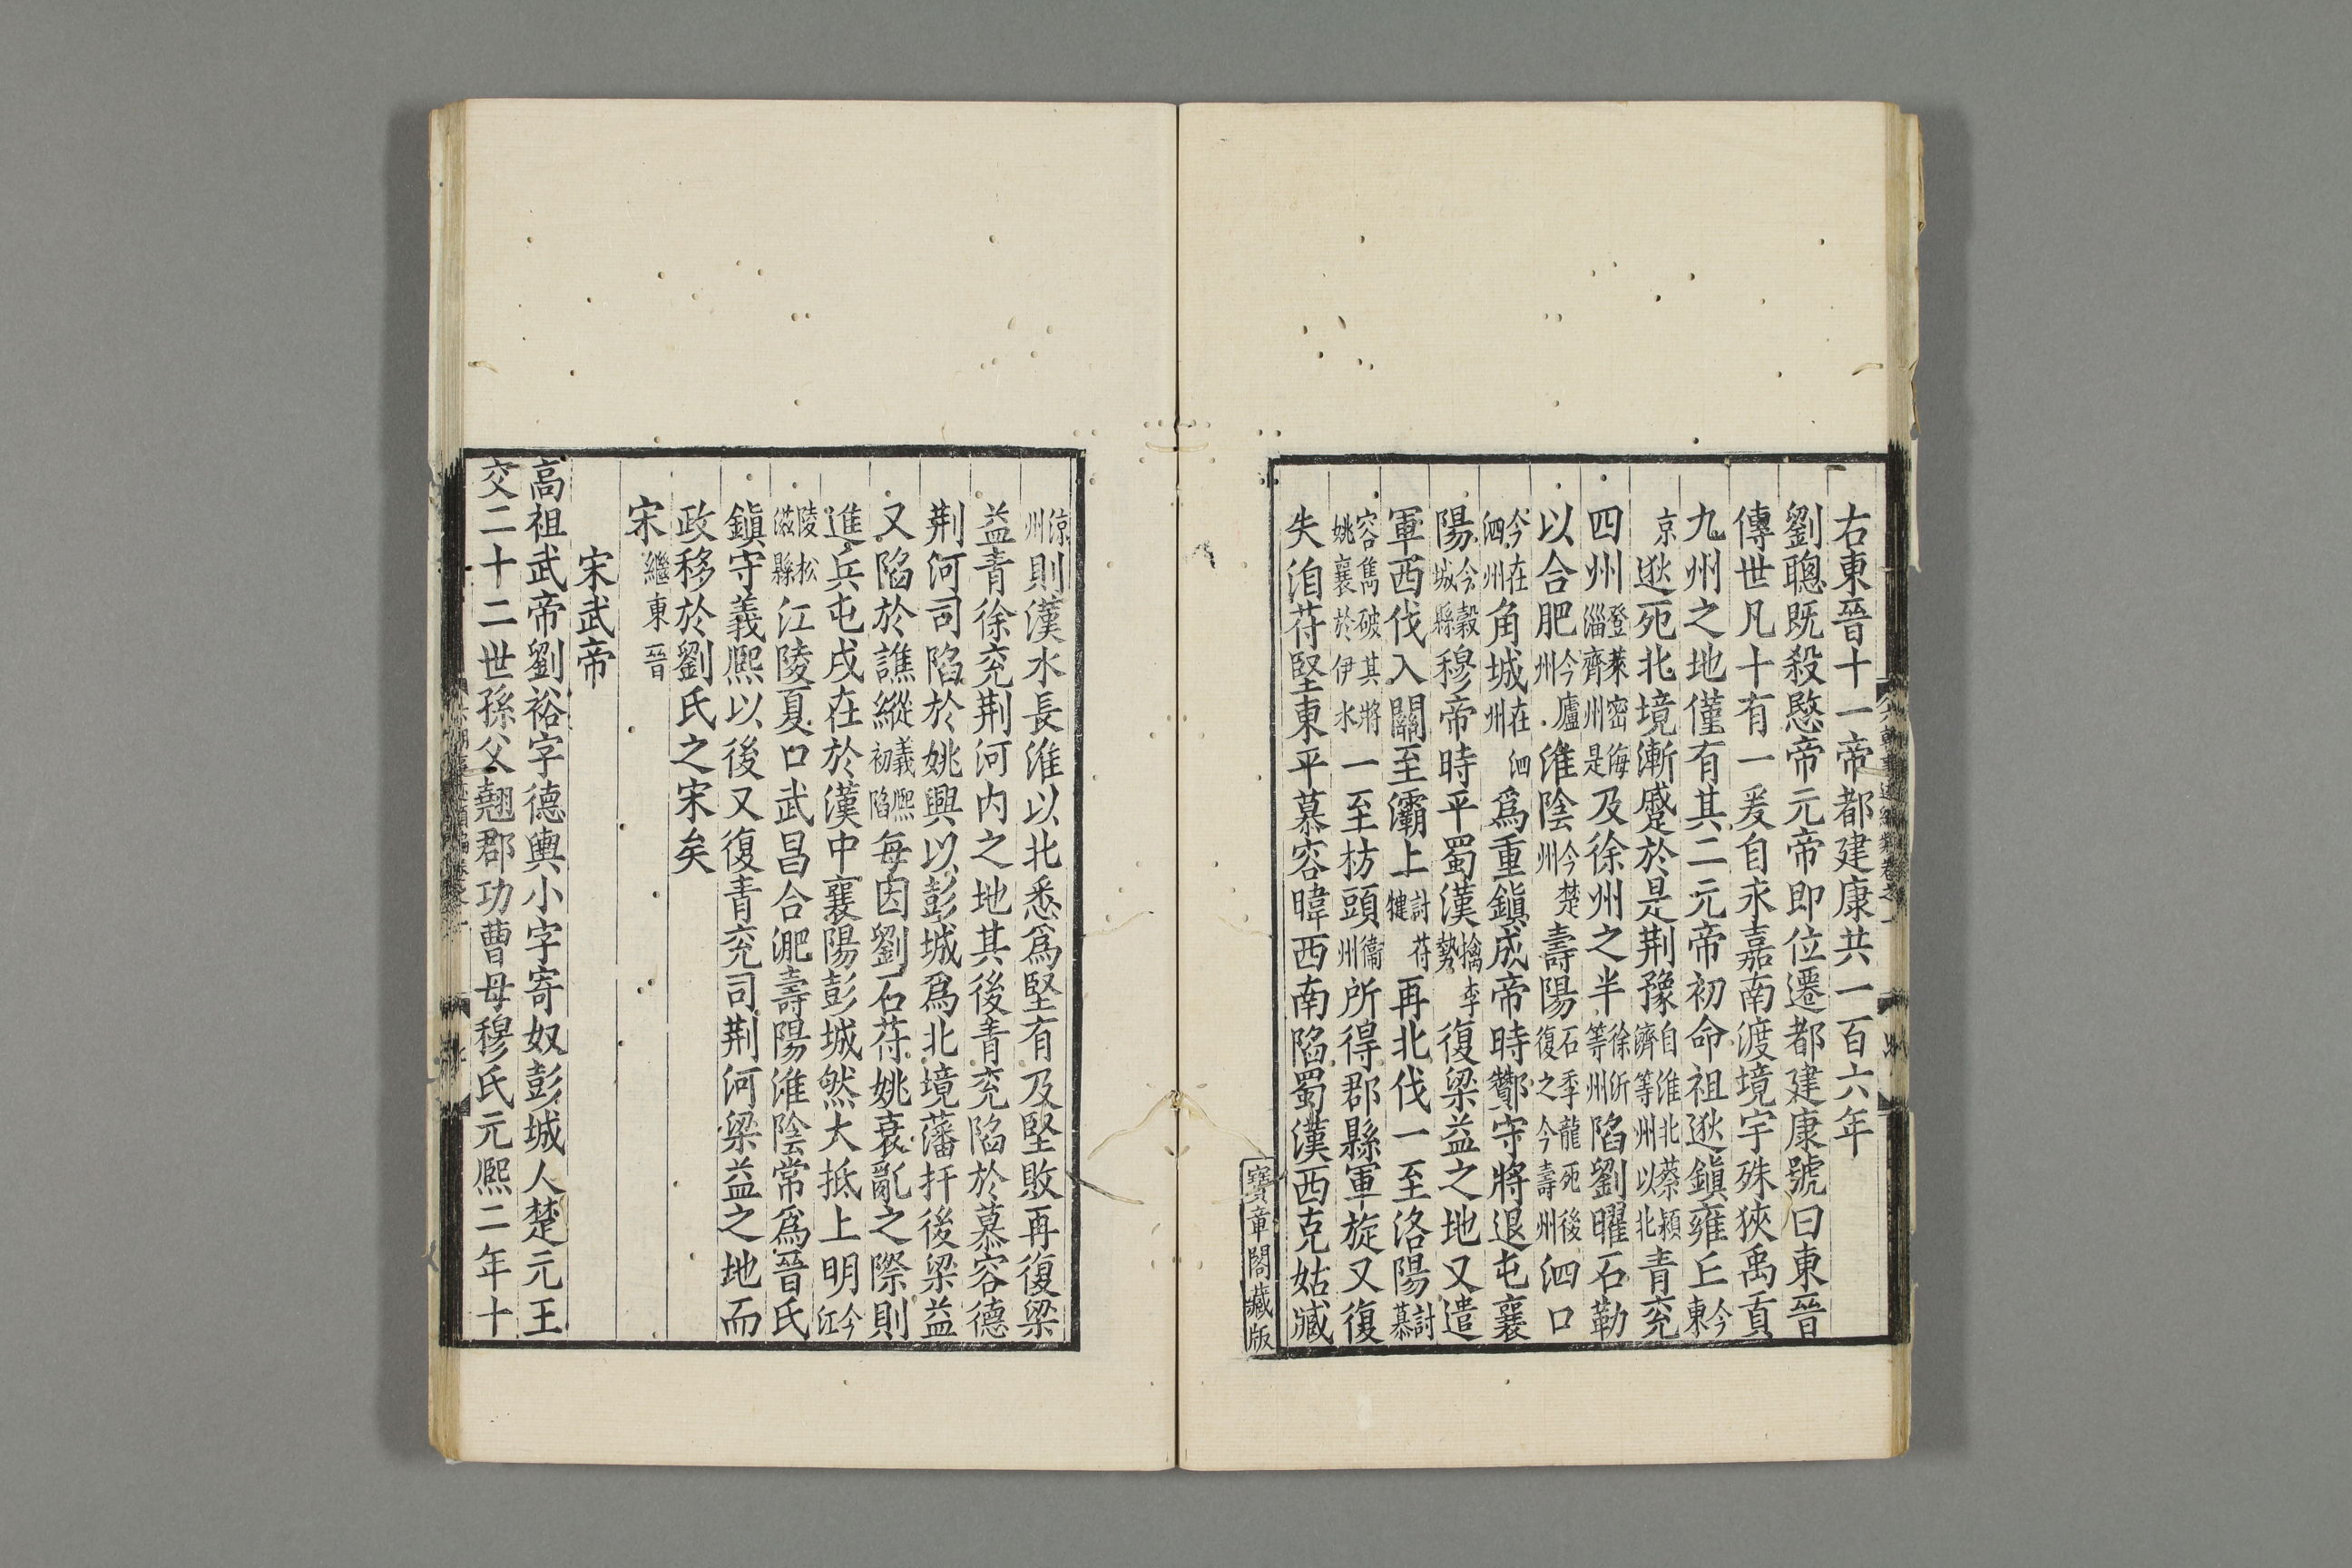 右東晉十一帝都建康共一百六年
劉聰既殺愍帝元帝即位遷都建康號曰東晉
傳世凡十有一爰自永嘉南渡境宇殊狹禹貢
九州之地僅有其二元帝初命祖逖鎮雍丘今東
京逖死北境漸蹙於是荆豫自淮北蔡潁濟等州以北青兖
四州登萊密海淄齊州是及徐州之半徐沂等州陷劉曜石勒
以合肥今廬州淮陰今楚州壽陽石季龍死後復之今壽州泗口
今在泗州角城在泗州爲重鎮成帝時酇守將退屯襄
陽今穀城縣穆帝時平蜀漢擒李勢復梁益之地又遣
軍西伐入關至灞上討苻犍再北伐一至洛陽討慕
容雋破其將姚襄於伊水一至枋頭衞州所得郡縣軍旋又復
失洎苻堅東平慕容暐西南陷蜀漢西克姑臧
寶章閣藏版
涼州則漢水長淮以北悉爲堅有及堅敗再復梁
益青徐兖荆河内之地其後青兖陷於慕容德
荆河司陷於姚興以彭城爲北境藩扞後梁益
又陷於譙縱義熙初陷每因劉石苻姚衰亂之際則
進兵屯戍在於漢中襄陽彭城然大抵上明今江
陵松滋縣江陵夏口武昌合淝壽陽淮陰常爲晉氏
鎮守義熙以後又復青兖司荆河梁益之地而
政移於劉氏之宋矣
宋繼東晉
宋武帝
高祖武帝劉裕字德輿小字寄奴彭城人楚元王
交二十二世孫父翹郡功曹母穆氏元熙二年十